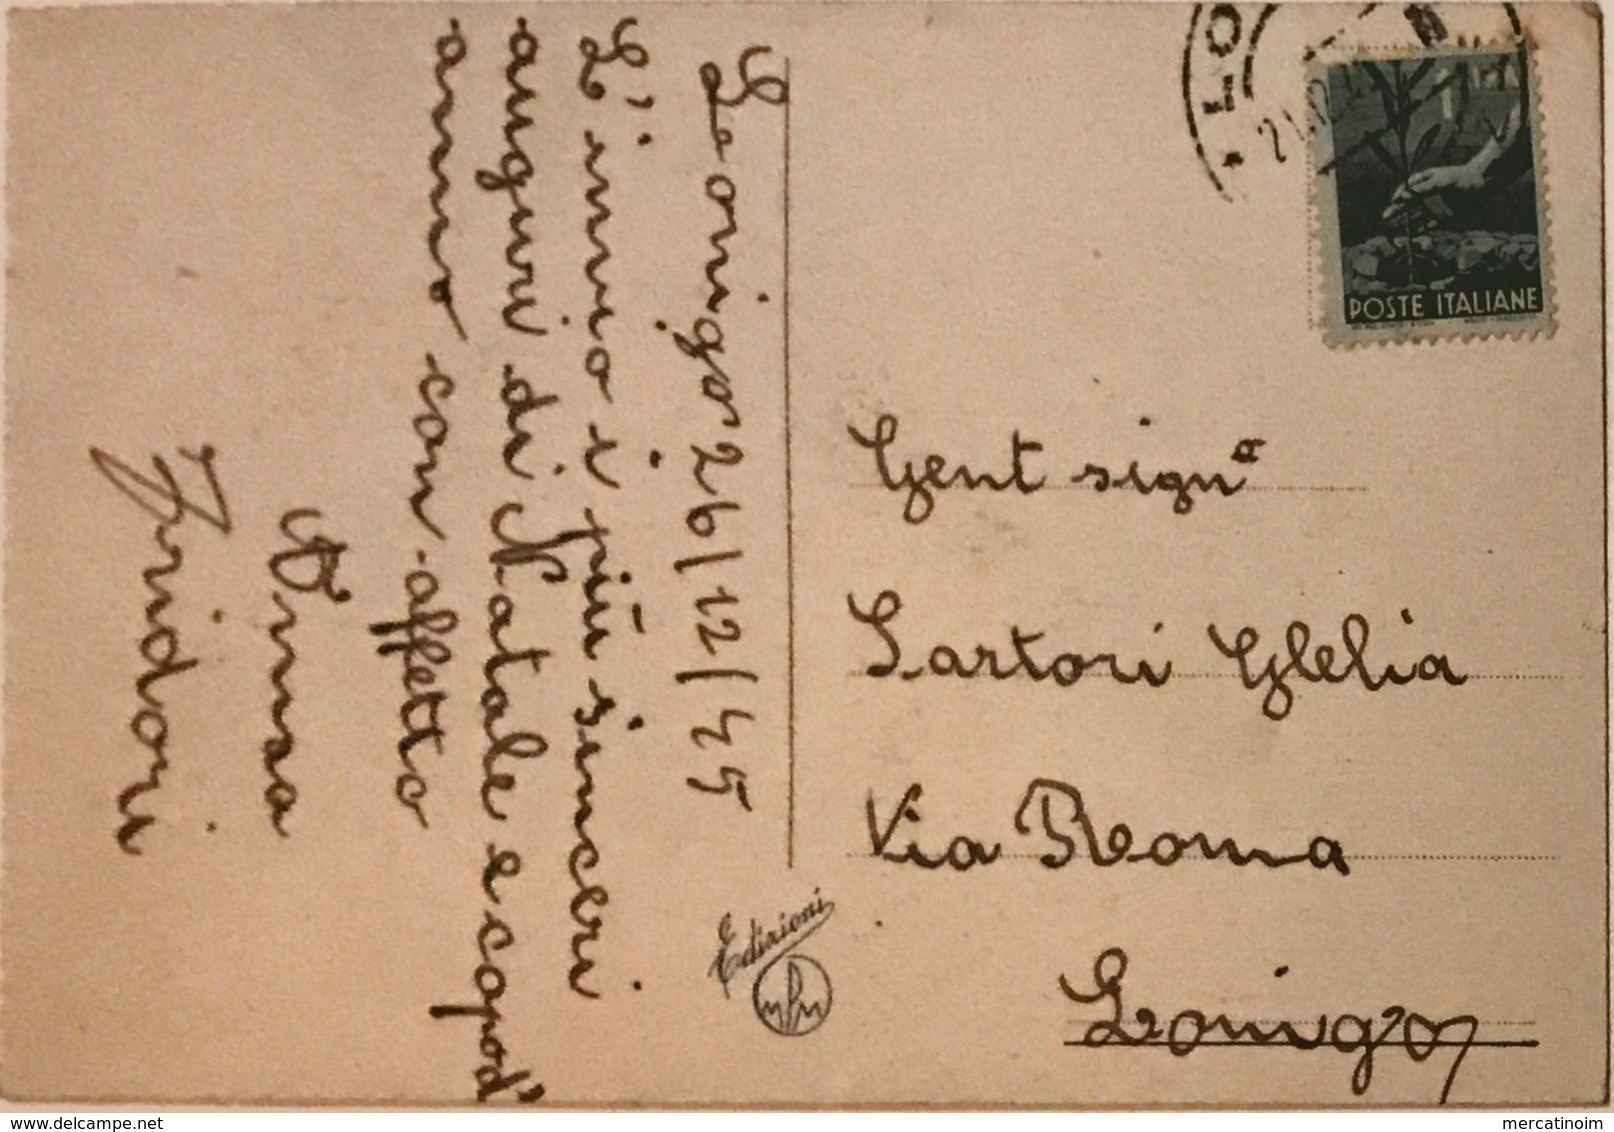 Lonigo 26/12/45
L'invio i più sinceri
auguri di Natale e capod'
anno con affetto
Irma
Fridori
LO
21.12.4
1
POSTE ITALIANE
Gent signa
Sartori Clelia
Via Roma
Lonigo
Edizioni
delcampe.net
mercatinoim